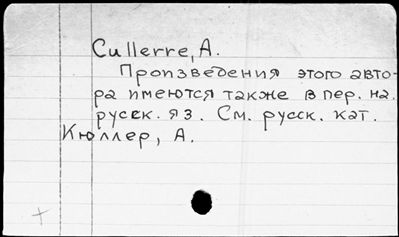 Cullerre, A.
Произведения этого авто-
ра имеются также в пер. на.
русск. яз. См. русск. кат.
Кюллер, А.